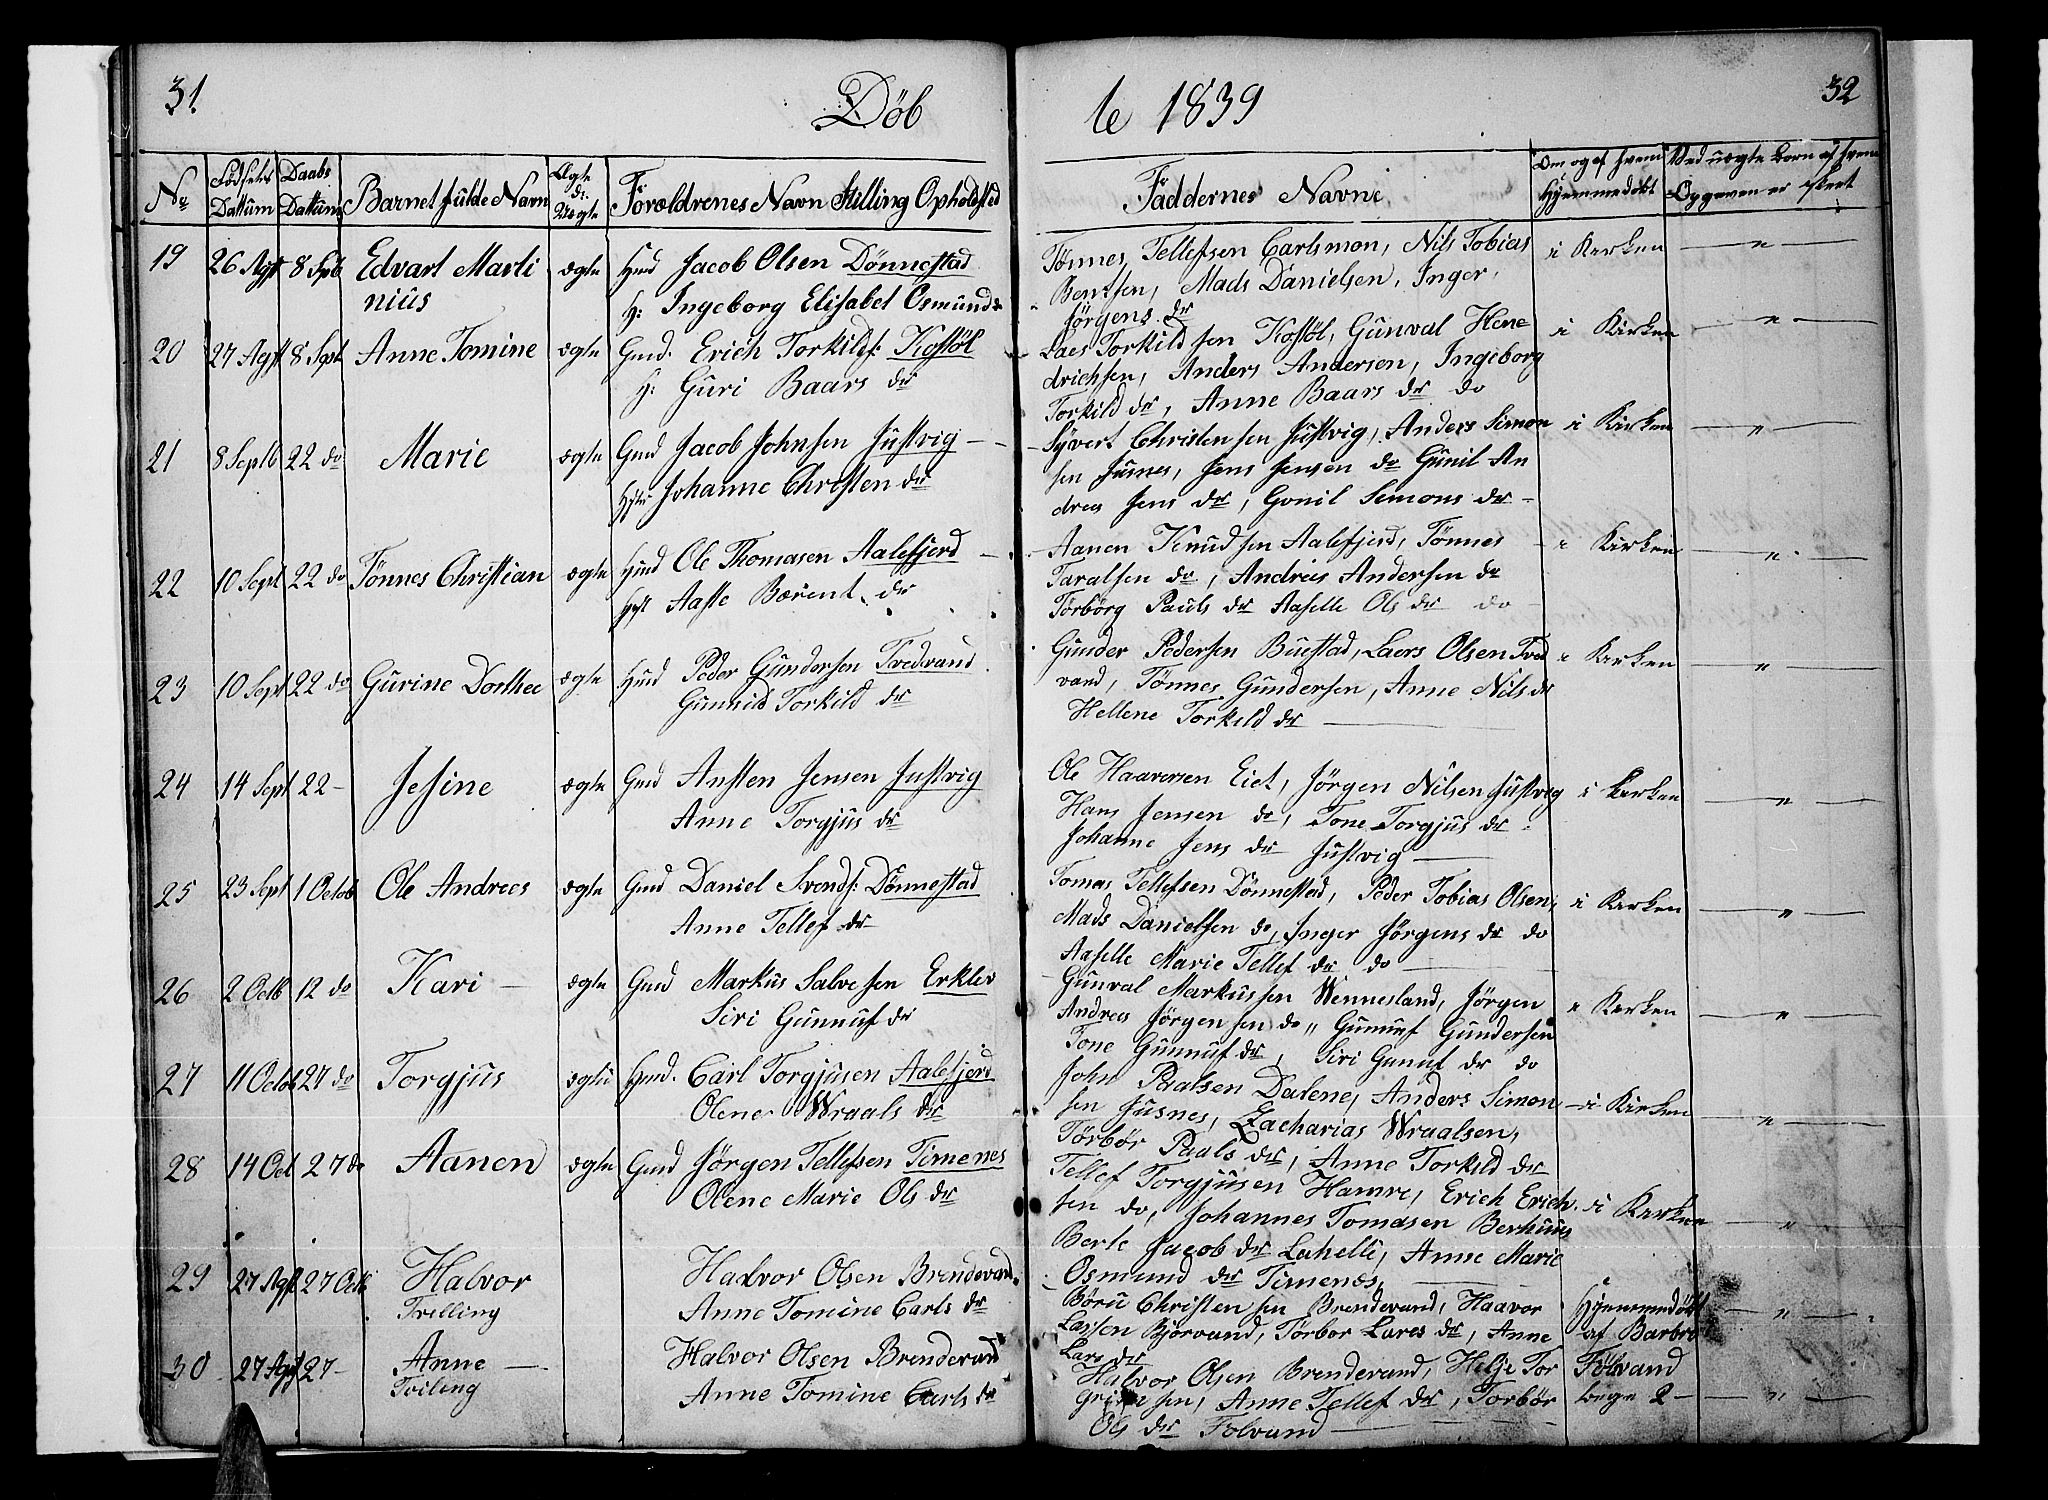 31.
Döb
te 1839
32
No
Födsels Dattum
Daabs Dattum
Barnet fulde Navn
Ægte d: Uægte
Foroldrenes Navn Stilling Opholdsted
Faddernes Navne
Om og af hvem Hjemmedøbt
Ved uægte Born af hvem Opgaven er skeet
19 26 Agst 8 Sptb Edvart Marti ægte Hmd Jacob Olsen Dönnestad
nius H: Ingeborg Elisabet Osmunds
Tønnes Tellefsen Carlsmon, Nils Tobias i Kirken — " —
Bentsen, Mads Danielsen, Inger
Jörgens dr
20 27 Agst 8 Sept Anne Tomine ægte Gmd. Erich Torkilds: Kostöl
H: Guri Baars dr
Laes Torkild sen Kostöl, Gunval Hene i Kirken — " —
drichsen, Anders Andersen, Ingeborg
Torkild dr, Anne Baars dr do
21 8 Septb 22 do Marie ægte Gmd Jacob Johnsen Justvig —
Hst Johanne Christen dr
Syvert Christensen Justvig, Anders Simon i Kirken — " —
sen Jusnes, Jens Jensen do Gunil An
drea Jens dr, Gonil Simons dr —
22 10 Sept 22 do Tönnes Christian ægte Hmd Ole Thomasen Aalefjerd —
Hst Aaste Bærent dr
Aanen Knudsen Aalefjerd, Tönnes i Kirken — " —
Taralsen do, Andreas Andersen do
Torbörg Pauls dr Aaselle Ols dr do
23 10 Sept 22 do Gurine Dorthee ægte Hmd Peder Gundersen Tredvand
Gunnild Torkild dr
Gunder Pedersen Buestad, Laers Olsen Tred i Kirken — " —
vand, Tönnes Gundersen, Anne Nils dr
Hellene Torkild dr —
24 14 Sept 22 — Jesine ægte Gmd Ansten Jensen Justvig
Anne Torgjus dr
Ole Haaversen Eiet, Jörgen Nilsen Justvig i Kirken — " —
Hans Jensen do, Tone Torgjus dr
Johanne Jens dr Justvig —
25 23 Sept 1 Octob Ole Andreas ægte Gmd Daniel Svends: Dönnestad
Anne Tellef dr
Tomas Tellefsen Dönnestad, Peder Tobias Olsen, i Kirken — " —
Mads Danielsen do, Inger Jörgens dr do
Aaselle Marie Tellef dr do —
26 2 Octb 12 do Kari — ægte Gmd Markus Salvesen Erklev
Siri Gunnuf dr
Gunval Markussen Wennesland, Jörgen i Kirken — " —
Andreas Jörgensen do " Gunuf Gundersen
Tone Gunnuf dr, Siri Gunuf dr do
27 11 Octob 27 do Torgjus ægte Hmd. Carl Torgjusen Aalefjerd
Olene Wraals dr
John Paalsen Dalene, Anders Simon — i Kirken — " —
sen Jusnes, Zacharias Wraalsen,
Torbör Paals dr, Anne Torkild dr
28 14 Oct 27 do Aanen ægte Gmd Jörgen Tellefsen Timenes
Olene Marie Ols dr
Tellef Torgjusen Hamre, Erich Erich i Kirken — " —
sen do, Johannes Tomasen Berhuus
Berte Jacob dr Lahelli, Anne Marie
Osmund dr Timenes, —
29 27 Agst 27 Octb Halvor Halvor Olsen Brendevand
Trilling Anne Tomine Carls dr
Böru Christensen Brendevand, Haavor Hjemmedöbt — " —
Lassen Bjorvand, Torbor Lares dr, Anne af Barbro
Lars dr
30 27 Agst 27 — Anne — Halvor Olsen Brendevand
Triling Anne Tomine Carls dr
Halvor Olsen Brendevand, Helje Tor Fölvand
Grimsen, Anne Tellef dr, Torbör bege 2 — — " —
Ols dr Folvand —